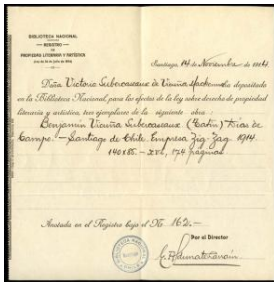 BIBLIOTECA NACIONAL
REGISTRO
DE
PROPIEDAD LITERARIA Y ARTÍSTICA
Santiago, 14 de Noviembre de 1914.
Doña Victoria Subercaseaux de Vicuña Mackenna ha depositado
en la Biblioteca Nacional, para los efectos de la ley sobre derecho de propiedad
literaria y artística, tres ejemplares de la siguiente obra:
Benjamin Vicuña Subercaseaux (Tatín) Días de
Campo.- Santiago de Chile. Empresa Zig-Zag 1914.
140x85.- XVI, 174 páginas
Anotada en el Registro bajo el N.º 162.-
Por el Director